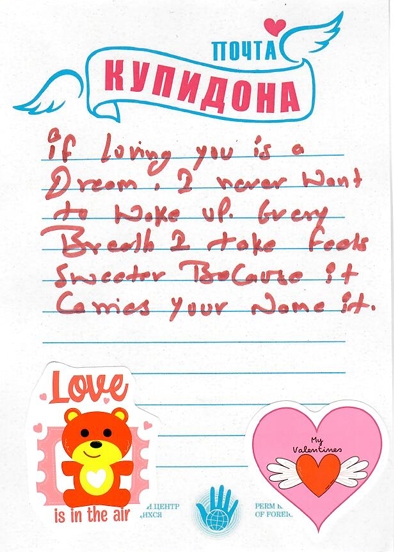 ПОЧТА
КУПИДОНА
if Loving you is a
Dream, I never Want
to Wake up. Every
Breath I take feels
Sweeter Because it
Carries your Name it.
Love
is in the air
My
Valentines
ЦЕНТР
PERM
OF FOREI